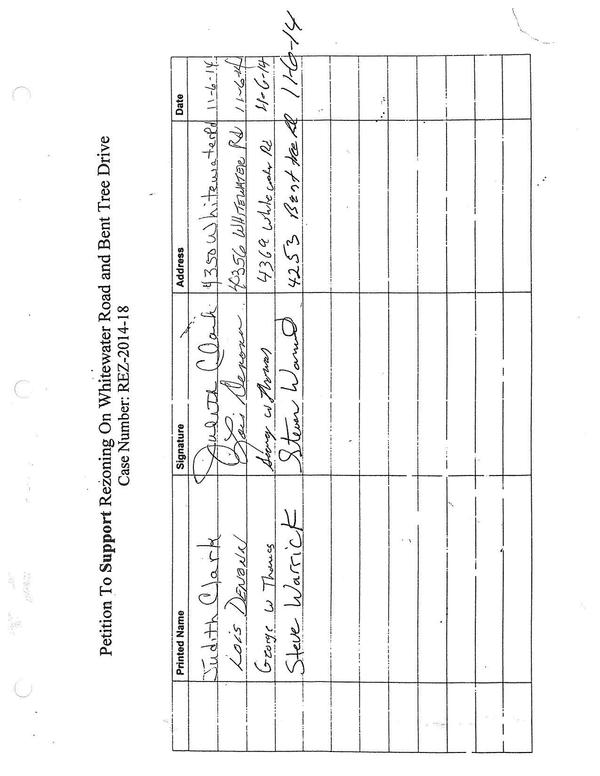 Petition To Support Rezoning On Whitewater Road and Bent Tree Drive
Case Number: REZ-2014-18
Printed Name Signature Address Date
Judith Clark Judith Clark 4350 Whitewater Rd 11-6-14
Lois Denonn Lois Denonn 4356 WHITEWATER Rd 11-6-14
George W Thomas George W Thomas 4369 Whitewater Rd 11-6-14
Steve Warrick Steven Warrick 4253 Bent tree Rd 11-6-14